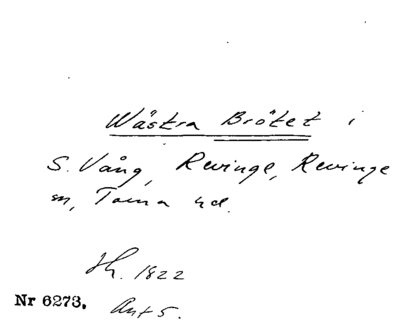 Wästra Brötet i
S. Vång, Revinge, Revinge
sn, Torna hd.
Jh. 1822
Nr 6273.
Ant 5.